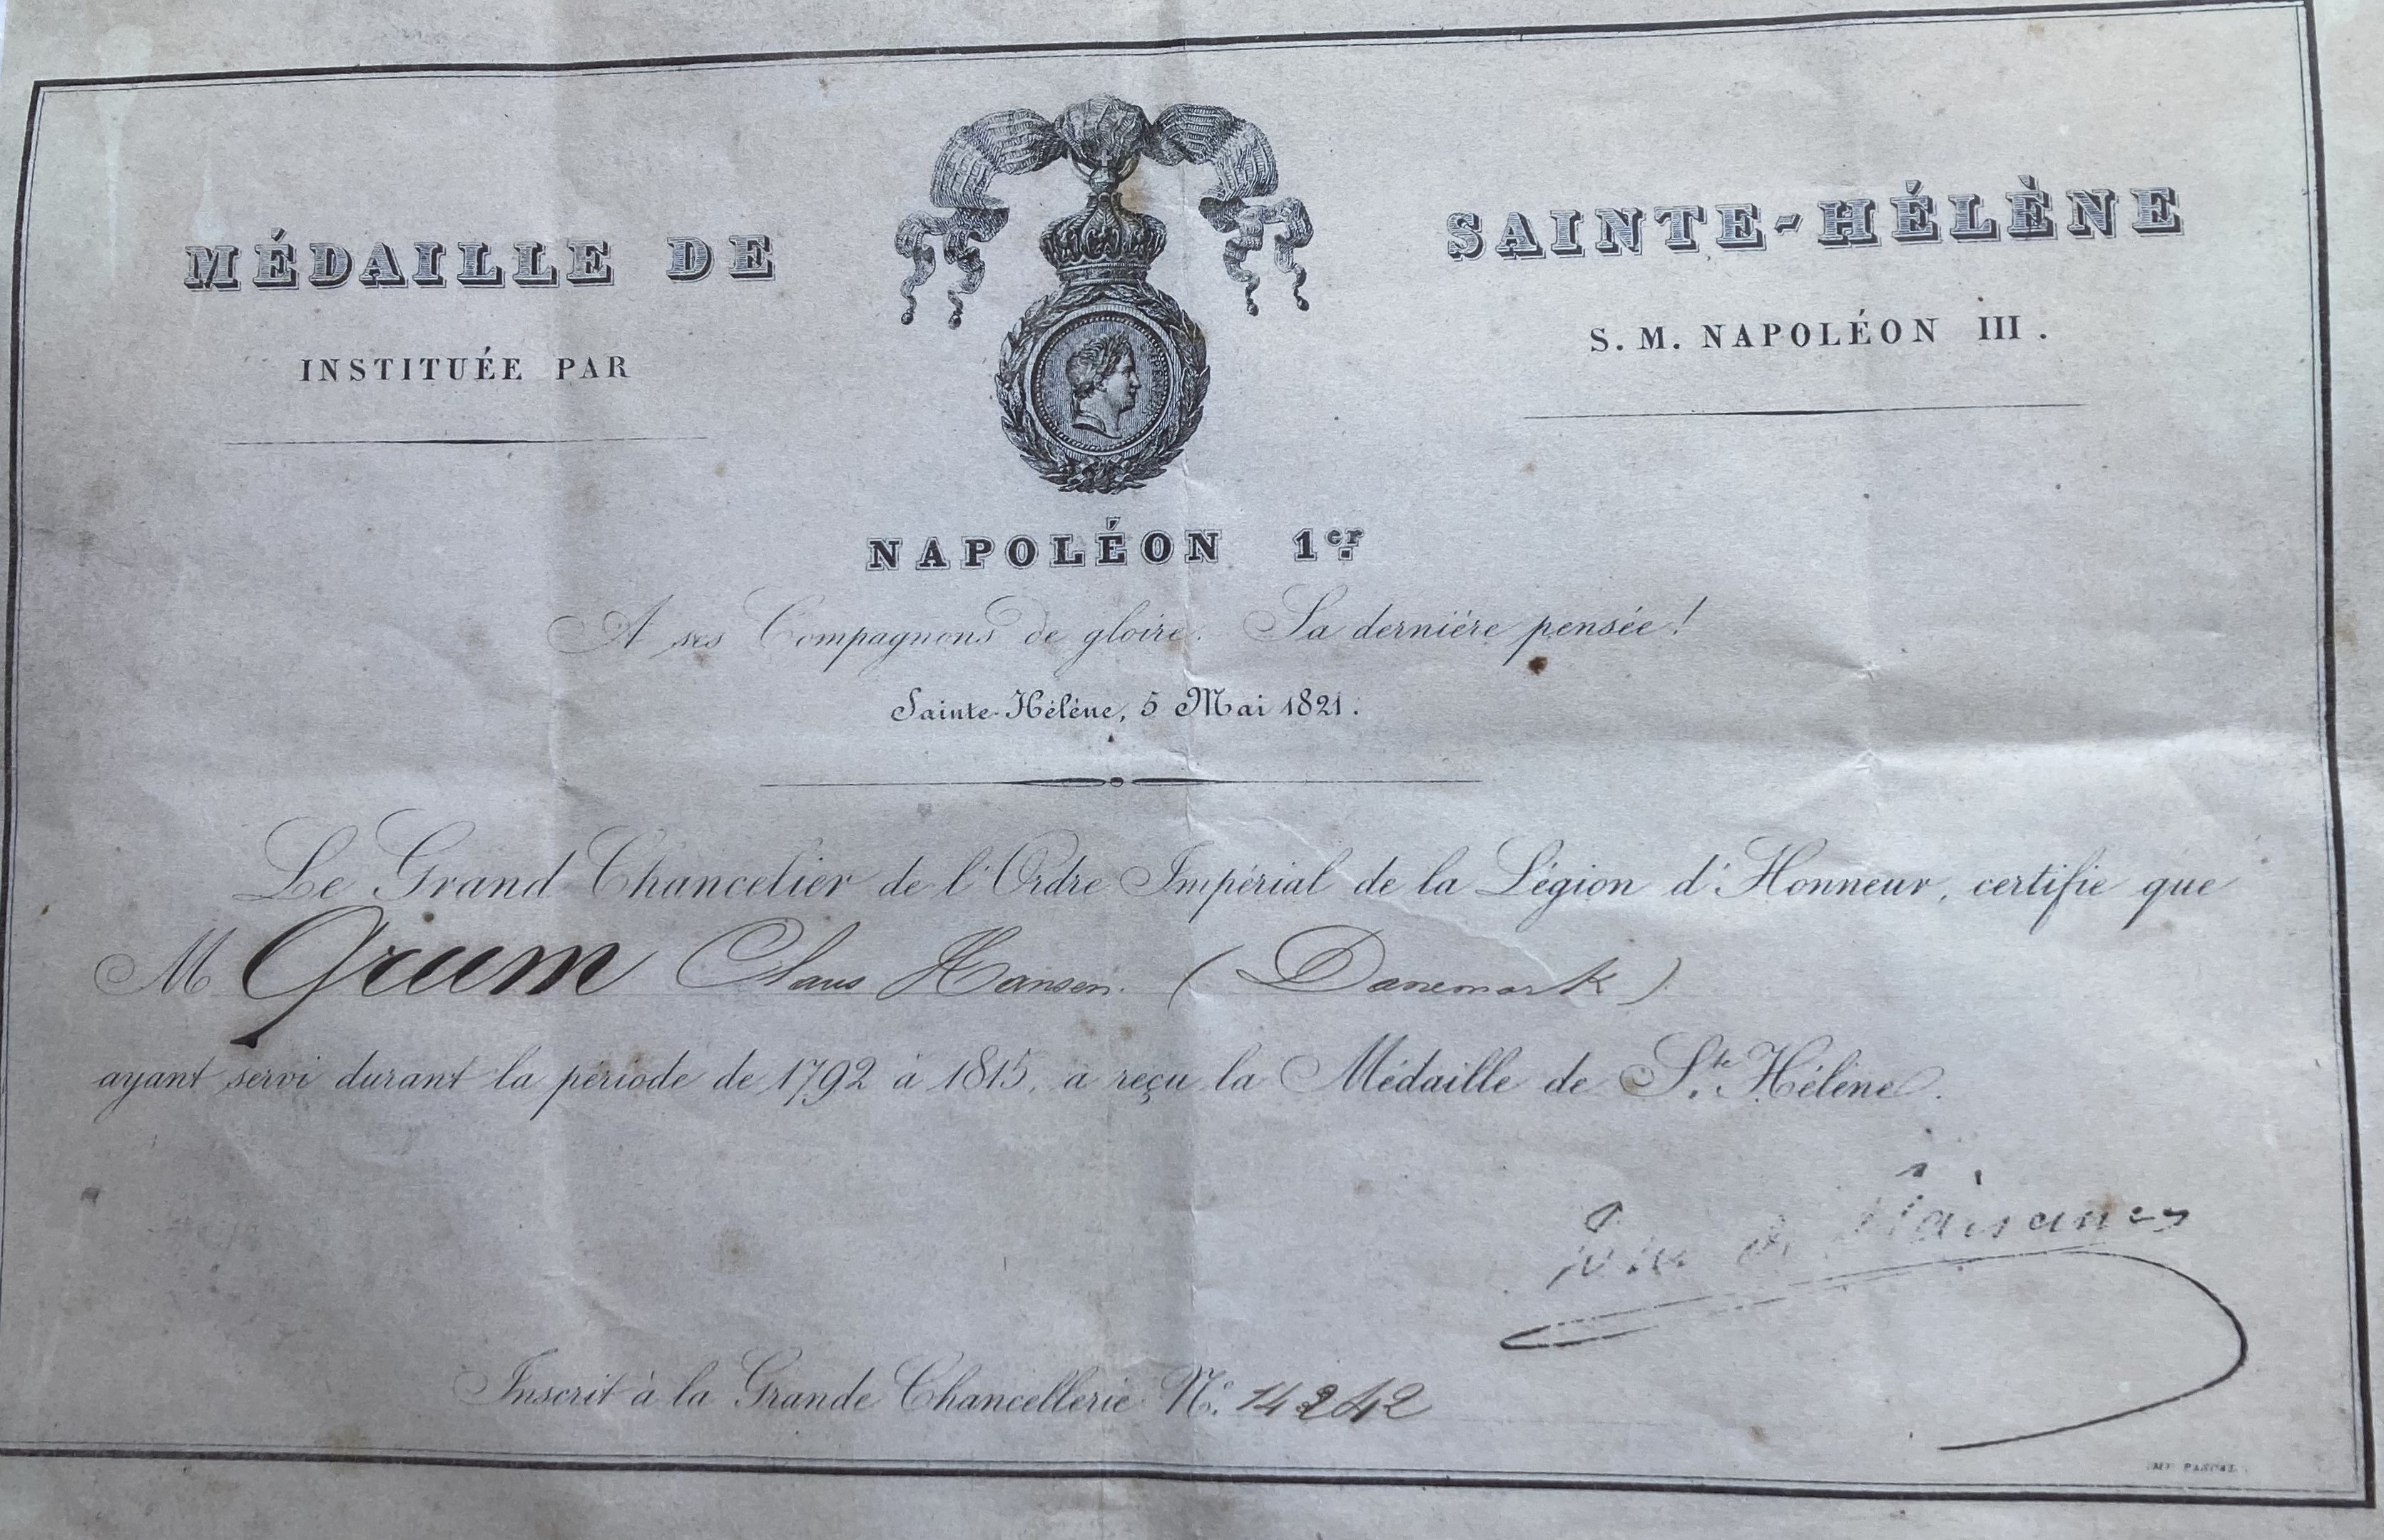 MÉDAILLE DE SAINTE-HÉLÈNE
INSTITUÉE PAR S. M. NAPOLÉON III.
NAPOLÉON 1er
A ses Compagnons de gloire. Sa dernière pensée!
Sainte-Hélène, 5 Mai 1821.
Le Grand Chancelier de l'Ordre Impérial de la Légion d'Honneur, certifie que
M Grum Claus Hansen. (Danemark)
ayant servi durant la période de 1792 à 1815, a reçu la Médaille de Ste Hélène.
Inscrit à la Grande Chancellerie No. 14242